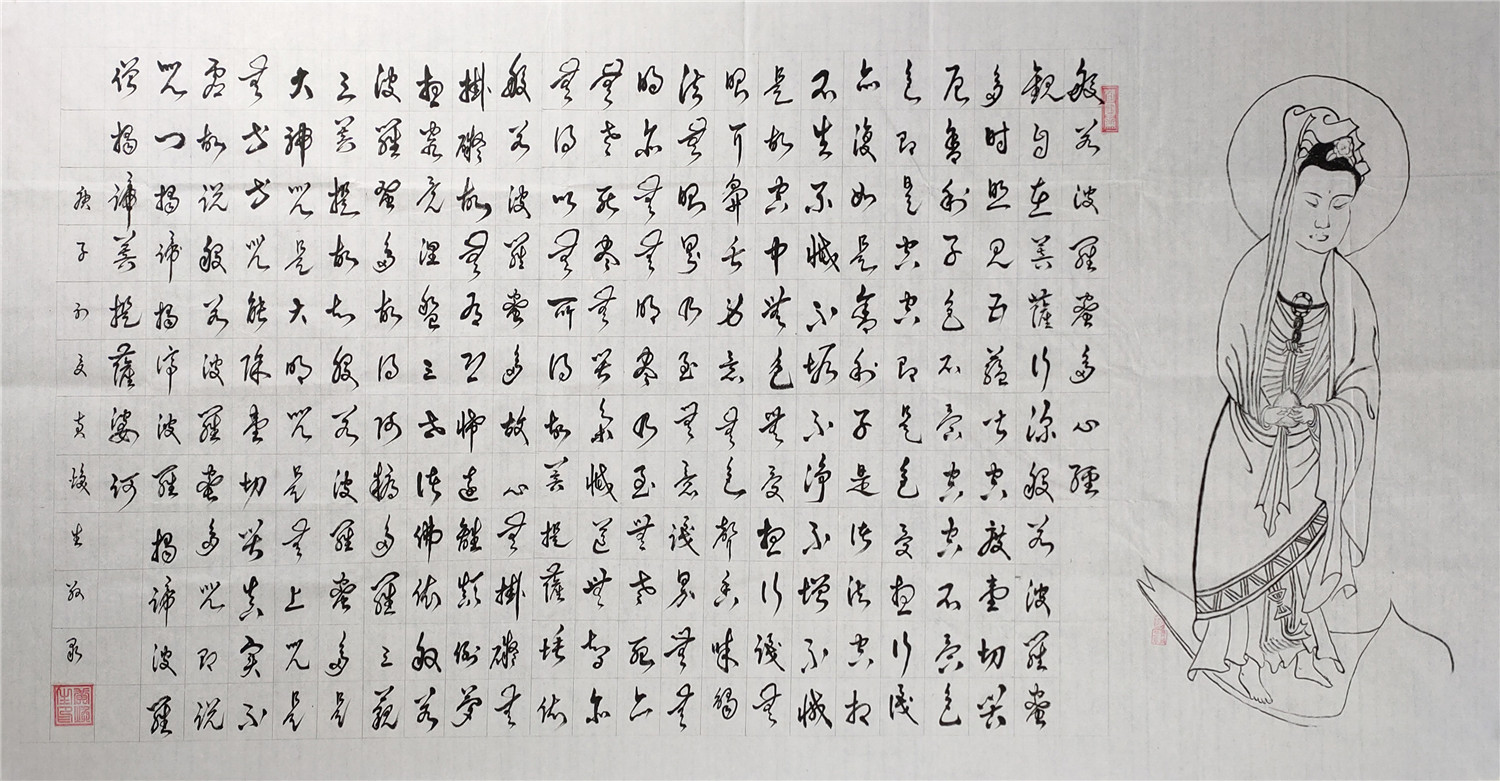 般若波羅蜜多心經
觀自在菩薩行深般若波羅蜜
多時照見五蘊皆空度壹切苦
厄舍利子色不異空空不異色
色即是空空即是色受想行識
亦復如是舍利子是諸法空相
不生不滅不垢不淨不增不減
是故空中無色無受想行識無
眼耳鼻舌身意無色聲香味觸
法無眼界乃至無意識界無無
明亦無無明盡乃至無老死亦
無老死盡無苦集滅道無智亦
無得以無所得故菩提薩埵依
般若波羅蜜多故心無掛礙無
掛礙故無有恐怖遠離顛倒夢
想究竟涅槃三世諸佛依般若
波羅蜜多故得阿耨多羅三藐
三菩提故知般若波羅蜜多是
大神咒是大明咒是無上咒是
無等等咒能除壹切苦真實不
虛故說般若波羅蜜多咒即說
咒曰揭諦揭諦波羅揭諦波羅
僧揭諦菩提薩婆訶
庚子初夏生敬录